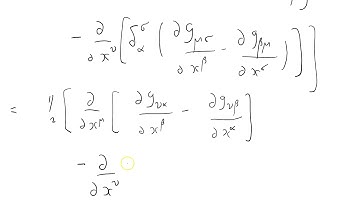 - ∂/∂x^ν [ δ_α^σ ( ∂g_μσ/∂x^β - ∂g_βμ/∂x^σ ) ] ]
= 1/2 [ ∂/∂x^μ [ ∂g_να/∂x^β - ∂g_νβ/∂x^α ]
- ∂/∂x^ν